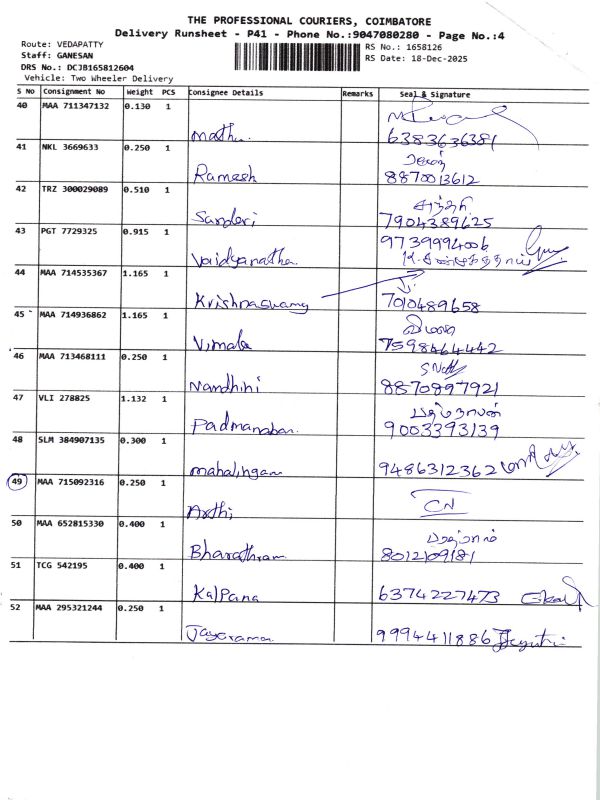 THE PROFESSIONAL COURIERS, COIMBATORE
Delivery Runsheet - P41 - Phone No.:9047080280 - Page No.:4
Route: VEDAPATTY
RS No.: 1658126
Staff: GANESAN
RS Date: 18-Dec-2025
DRS No.: DCJB165812604
Vehicle: Two Wheeler Delivery
S No Consignment No Weight PCS Consignee Details Remarks Seal & Signature
40 MAA 711347132 0.130 1
Mathu. 6383636381
41 NKL 3669633 0.250 1
Ramesh 8870013612
42 TRZ 300029089 0.510 1
Sanderi 7904389625
43 PGT 7729325 0.915 1 9739994006
Vaidyanatha
44 MAA 714535367 1.165 1
Krishnaswamy 7010489658
45 MAA 714936862 1.165 1 விமலா
Vimala 7598464442
46 MAA 713468111 0.250 1
Nandhini 8870897921
47 VLI 278825 1.132 1 பத்மநாபன்
Padmanaban. 9003393139
48 SLM 384907135 0.300 1
Mahalingam 9486312362
49 MAA 715092316 0.250 1 CN
Arthi
50 MAA 652815330 0.400 1
Bharathram 8012109181
51 TCG 542195 0.400 1
Kalpana 6374227473
52 MAA 295321244 0.250 1
Jayarama 9994411886